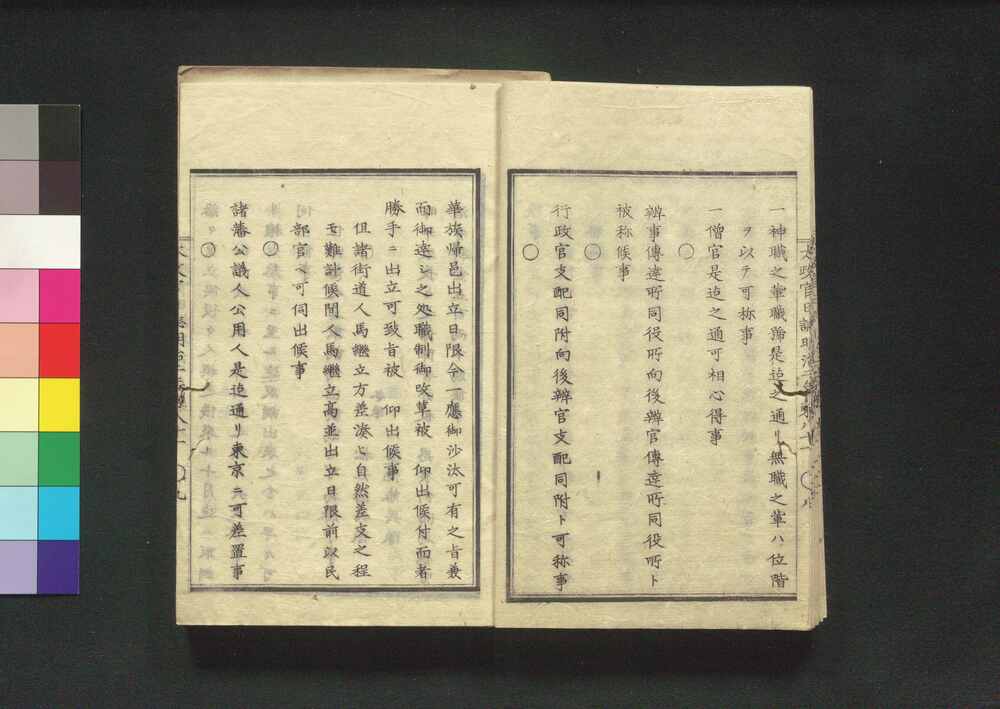 一神職之輩職務是迄之通リ無職之輩ハ位階
ヲ以テ可称事
一僧官是迄之通可相心得事
○
辨事傳達所同役所向後辨官傳達所同役所ト
被称候事
○
行政官支配同附向後辨官支配同附ト可称事
○
華族帰邑出立日限今一應御沙汰可有之旨兼
而御達シ之処職制御改革被 仰出候付而者
勝手ニ出立可致旨被 仰出候事
但諸街道人馬継立方差湊ヒ自然差支之程
モ難計候間人馬継立高並出立日限前以民
部官ヘ可伺出候事
○
諸藩公議人公用人是迄通リ東京ニ可差置事
○